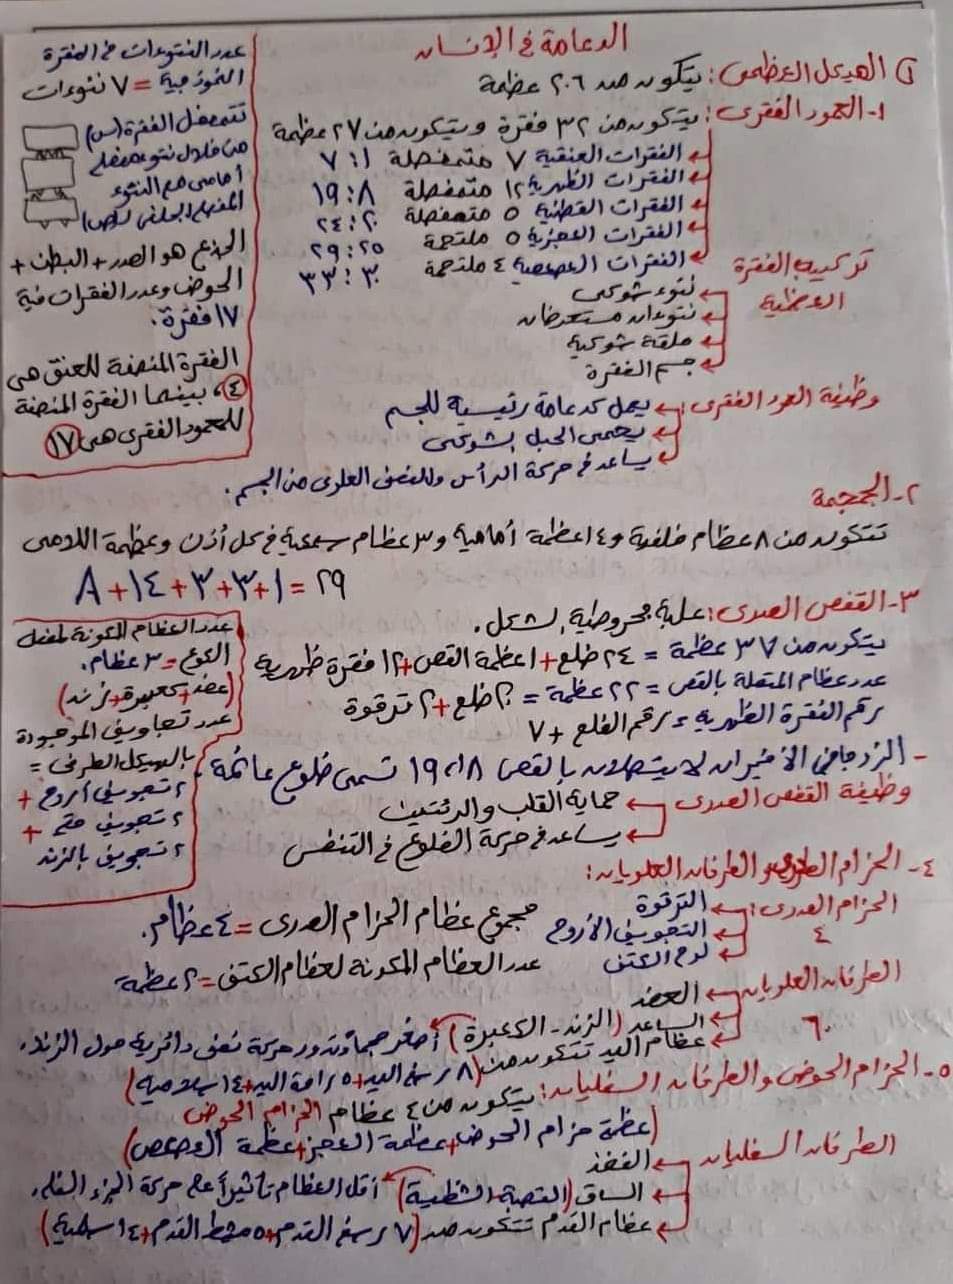 الدعامة في الإنسان
① الهيكل العظمي: يتكون من ٢٠٦ عظمة
١- العمود الفقري: يتكون من ٣٢ فقرة ويتكون من ٢٧ عظمة
الفقرات العنقية ٧ متمفصلة ١ : ٧
الفقرات الظهرية ١٢ متمفصلة ٨ : ١٩
الفقرات القطنية ٥ متمفصلة ٢٠ : ٢٤
الفقرات العجزية ٥ ملتحمة ٢٥ : ٢٩
الفقرات العصعصية ٤ ملتحمة ٣٠ : ٣٣
تركيب الفقرة العظمية
نتوء شوكي
نتوءان مستعرضان
حلقة شوكية
جسم الفقرة
وظيفة العمود الفقري:
يعمل كدعامة رئيسية للجسم
يحمي الحبل الشوكي
يساعد في حركة الرأس والنصف العلوي من الجسم.
عدد النتوءات في الفقرة
النموذجية = ٧ نتوءات
تتمفصل الفقرة (س)
من خلال نتوء مفصلي
أمامي مع النتوء
المفصلي الخلفي لـ(ص)
الجذع هو الصدر + البطن +
الحوض وعدد الفقرات فيه
١٧ فقرة.
الفقرة المنصفة للعنق هي
٤، بينما الفقرة المنصفة
للعمود الفقري هي ١٧
٢- الجمجمة
تتكون من ٨ عظام خلفية و١٤ عظمة أمامية و٣ عظام سمعية في كل أذن وعظمة اللامي
٨ + ١٤ + ٣ + ٣ + ١ = ٢٩
٣- القفص الصدري: علبة مخروطية الشكل.
يتكون من ٣٧ عظمة = ٢٤ ضلع + ١ عظمة القص + ١٢ فقرة ظهرية
عدد عظام المتصلة بالقص = ٢٢ عظمة = ٢٠ ضلع + ٢ ترقوة
رقم الفقرة الظهرية = رقم الضلع + ٧
- الزوجان الأخيران لا يتصلان بالقص ١٨، ١٩ تسمى ضلوع عائمة
وظيفة القفص الصدري
حماية القلب والرئتين
يساعد في حركة الضلوع في التنفس
عدد العظام المكونة لمفصل
الكوع = ٣ عظام.
(عضد + كعبرة + زند)
عدد تجاويف الموجودة
بالهيكل الطرفي =
٢ تجويف أروح +
٢ تجويف حقي +
٢ تجويف بالزند
٤- الحزام الصدري والطرفان العلويان:
الحزام الصدري: ٤
الترقوة
التجويف الأروح
لوح الكتف
مجموع عظام الحزام الصدري = ٤ عظام.
عدد العظام المكونة لعظام الكتف = ٢ عظمة
الطرفان العلويان ٦٠
العضد
الساعد (الزند - الكعبرة) أصغر حجماً وتدور حركة نصف دائرية حول الزند.
عظام اليد تتكون من (٨ رسغ اليد + ٥ راحة اليد + ١٤ سلامية)
٥- الحزام الحوضي والطرفان السفليان: يتكون من ٤ عظام الحزام الحوض
(عظمة حزام الحوض + عظمة العجز + عظمة العصعص)
الطرفان السفليان
الفخذ
الساق (القصبة - الشظية) أقل العظام تأثيراً على حركة الجزء السفلي.
عظام القدم تتكون من (٧ رسغ القدم + ٥ مشط القدم + ١٤ سلامية)